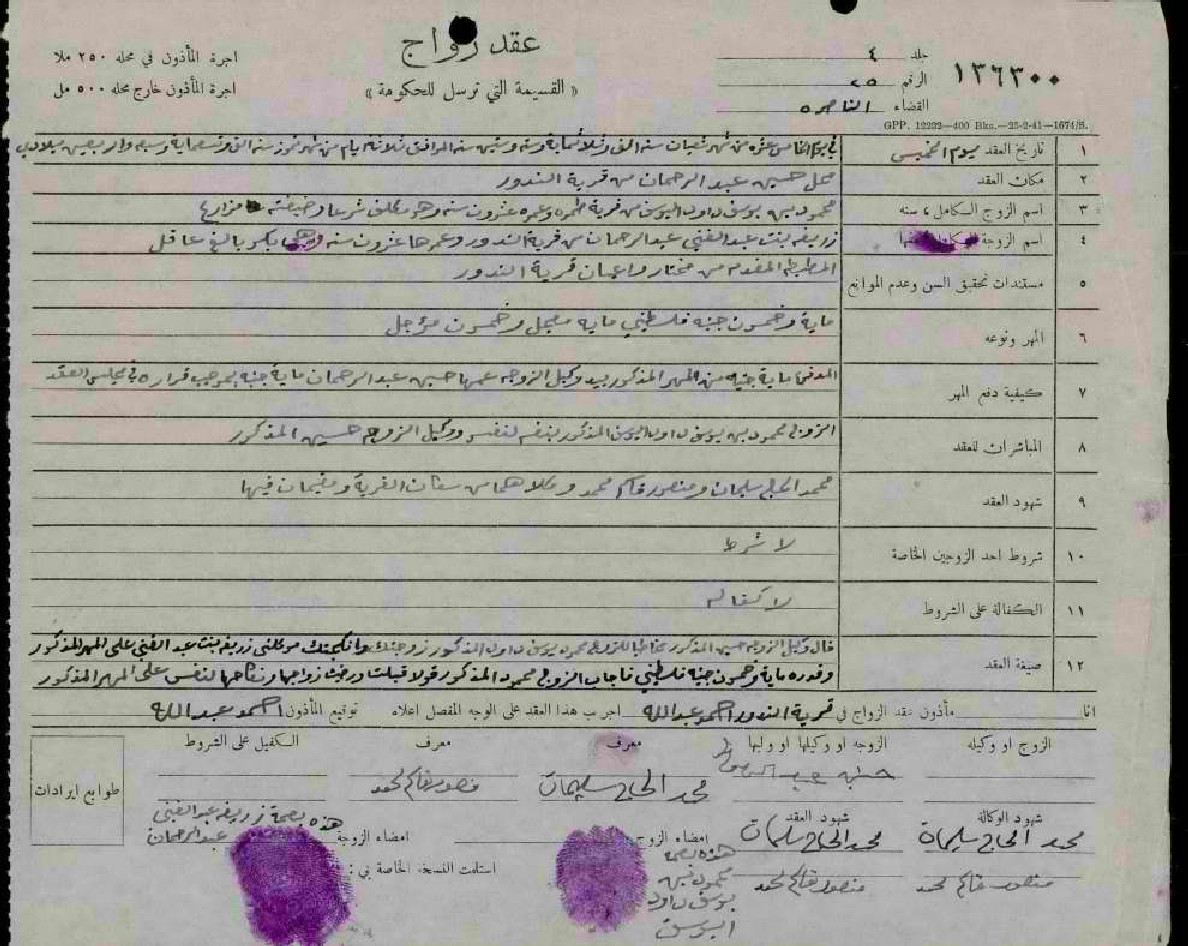 عقد زواج
« القسيمة التي ترسل للحكومة »
اجرة المأذون في محله ٢٥٠ ملا
اجرة المأذون خارج محله ٥٠٠ مل
جلد ٤
الرقم ٢٥
القضاء الناصره
١٣٦٣٠٠
GPP. 12232—400 Bks.—25-2-41—1674/S.
١ تاريخ العقد يوم الخميس في يوم الخامس عشره من شهر شعبان سنة الف وثلاثماية وسته وستين سنه الموافق ثلاثة ايام من شهر تموز سنه الف وتسعماية وسبعه واربعين ميلادي
٢ مكان العقد محل حسين عبد الرحمان من قرية الندور
٣ اسم الزوج الكامل، سنه محمود بن يوسف داود اليوسف من قرية طمره وعمره عشرون سنه وهو مكلف شرعا وضيفته مزارع
٤ اسم الزوجة زريفه بنت عبد الغني عبد الرحمان من قرية الندور وعمرها عشرون سنه وهي بكر بالغ عاقل
٥ مستندات تحقيق السن وعدم الموانع المظبطه المقدمه من مختار واعيان قرية الندور
٦ المهر ونوعه ماية وخمسون جنيه فلسطيني مايه معجل وخمسون مؤجل
٧ كيفية دفع المهر المدفوع ماية جنيه من المهر المذكور بيد وكيل الزوجه عمها حسين عبد الرحمان ماية جنيه بموجب قراره في مجلس العقد
٨ المباشران للعقد الزوج محمود بن يوسف داود اليوسف المذكور بنفسه لنفسه ووكيل الزوجه حسين المذكور
٩ شهود العقد محمد الحاج سليمان ومنصور قاسم محمد وكلاهما من سكان القرية ومقيمان فيها
١٠ شروط احد الزوجين الخاصة لا شرط
١١ الكفالة على الشروط لا كفاله
١٢ صيغة العقد قال وكيل الزوجه حسين المذكور مخاطبا للزوج محمود يوسف داود المذكور زوجتك وانكحتك موكلتي زريفه بنت عبد الغني على المهر المذكور
وقدره ماية وخمسون جنيه فلسطيني فاجاب الزوج محمود المذكور قولا قبلت ورضيت زواجها ونكاحها لنفسي على المهر المذكور
انا احمد عبد الله مأذون عقد الزواج في قرية الندور اجريت هذا العقد على الوجه المفصل اعلاه توقيع المأذون احمد عبد الله
الزوج او وكيله
الزوجه او وكيلها او وليها
معرف
معرف
الكفيل على الشروط
محمد الحاج سليمان
منصور قاسم محمد
طوابع ايرادات
شهود الوكالة
محمد الحاج سليمان
منصور قاسم محمد
شهود العقد
محمد الحاج سليمان
منصور قاسم محمد
امضاء الزوج
هذه بصمة
محمود بن
يوسف داود
اليوسف
امضاء الزوجة
هذه بصمة زريفه عبد الغني
عبد الرحمان
استلمت النسخة الخاصة بي :